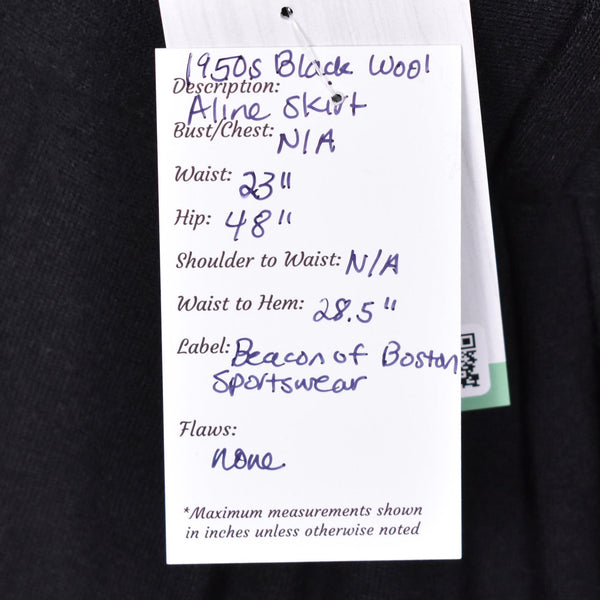 1950s Black Wool
Description:
Aline Skirt
Bust/Chest: N/A
Waist: 23"
Hip: 48"
Shoulder to Waist: N/A
Waist to Hem: 28.5"
Label: Beacon of Boston
Sportswear
Flaws:
none
*Maximum measurements shown
in inches unless otherwise noted